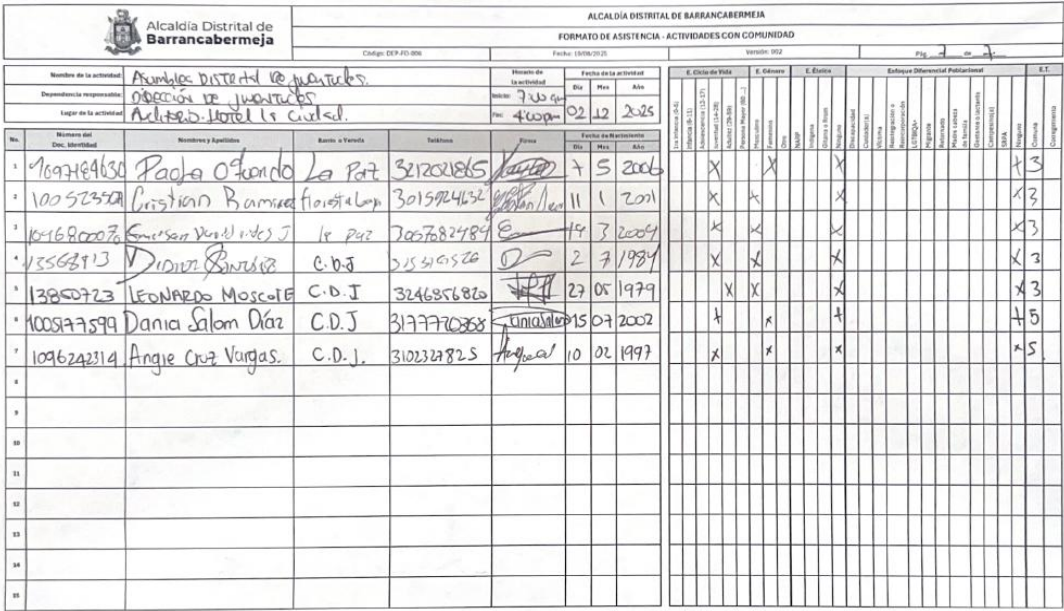 Alcaldía Distrital de
Barrancabermeja
ALCALDÍA DISTRITAL DE BARRANCABERMEJA
FORMATO DE ASISTENCIA - ACTIVIDADES CON COMUNIDAD
Código: DEP-FO-006 Fecha: 19/08/2025 Versión: 002 Pág. de
Nombre de la actividad: Asamblea Distrital de Juventudes.
Dependencia responsable: Dirección de Juventudes
Lugar de la actividad: Auditorio Hotel la Ciudad.
Horario de la actividad
Inicio: 7:00 am
Fin: 4:00pm
Fecha de la actividad
Día Mes Año
02 12 2025
E. Ciclo de Vida E. Género E. Étnico Enfoque Diferencial Poblacional E.T.
1ra Infancia (0-5) Infancia (6-11) Adolescencia (12-17) Juventud (14-28) Adultez (29-59) Persona Mayor (60 ...) Masculino Femenino Otro NARP Indígena Gitano o Rrom Ninguno Discapacidad Cuidador(a) Víctima Reintegración o Reincorporación LGTBIQA+ Migrante Retornado Madre cabeza de familia Gestante o lactante Campesino(a) Ninguno Comuna Corregimiento
No. Número del Doc. Identidad Nombres y Apellidos Barrio o Vereda Teléfono Firma Fecha de Nacimiento
Día Mes Año
1 1097184630 Paola Oquendo La Paz 3212021865 7 5 2006 X X X X 3
2 Cristian Ramirez floresta baja 3015924632 11 1 2001 X X X X 3
3 J la paz 3057682484 19 3 2004 X X X X 3
4 13568913 Didier C.D.J 2 7 1984 X X X X 3
5 13850723 LEONARDO MOSCOTE C.D.J 3246856820 27 05 1979 X X X X 3
6 1005177599 Dania Salom Díaz C.D.J 3177770368 Dania Salom 15 07 2002 X X X X 5
7 1096242314 Angie Cruz Vargas. C.D.J. 3102327825 10 02 1997 X X X X 5
8
9
10
11
12
13
14
15